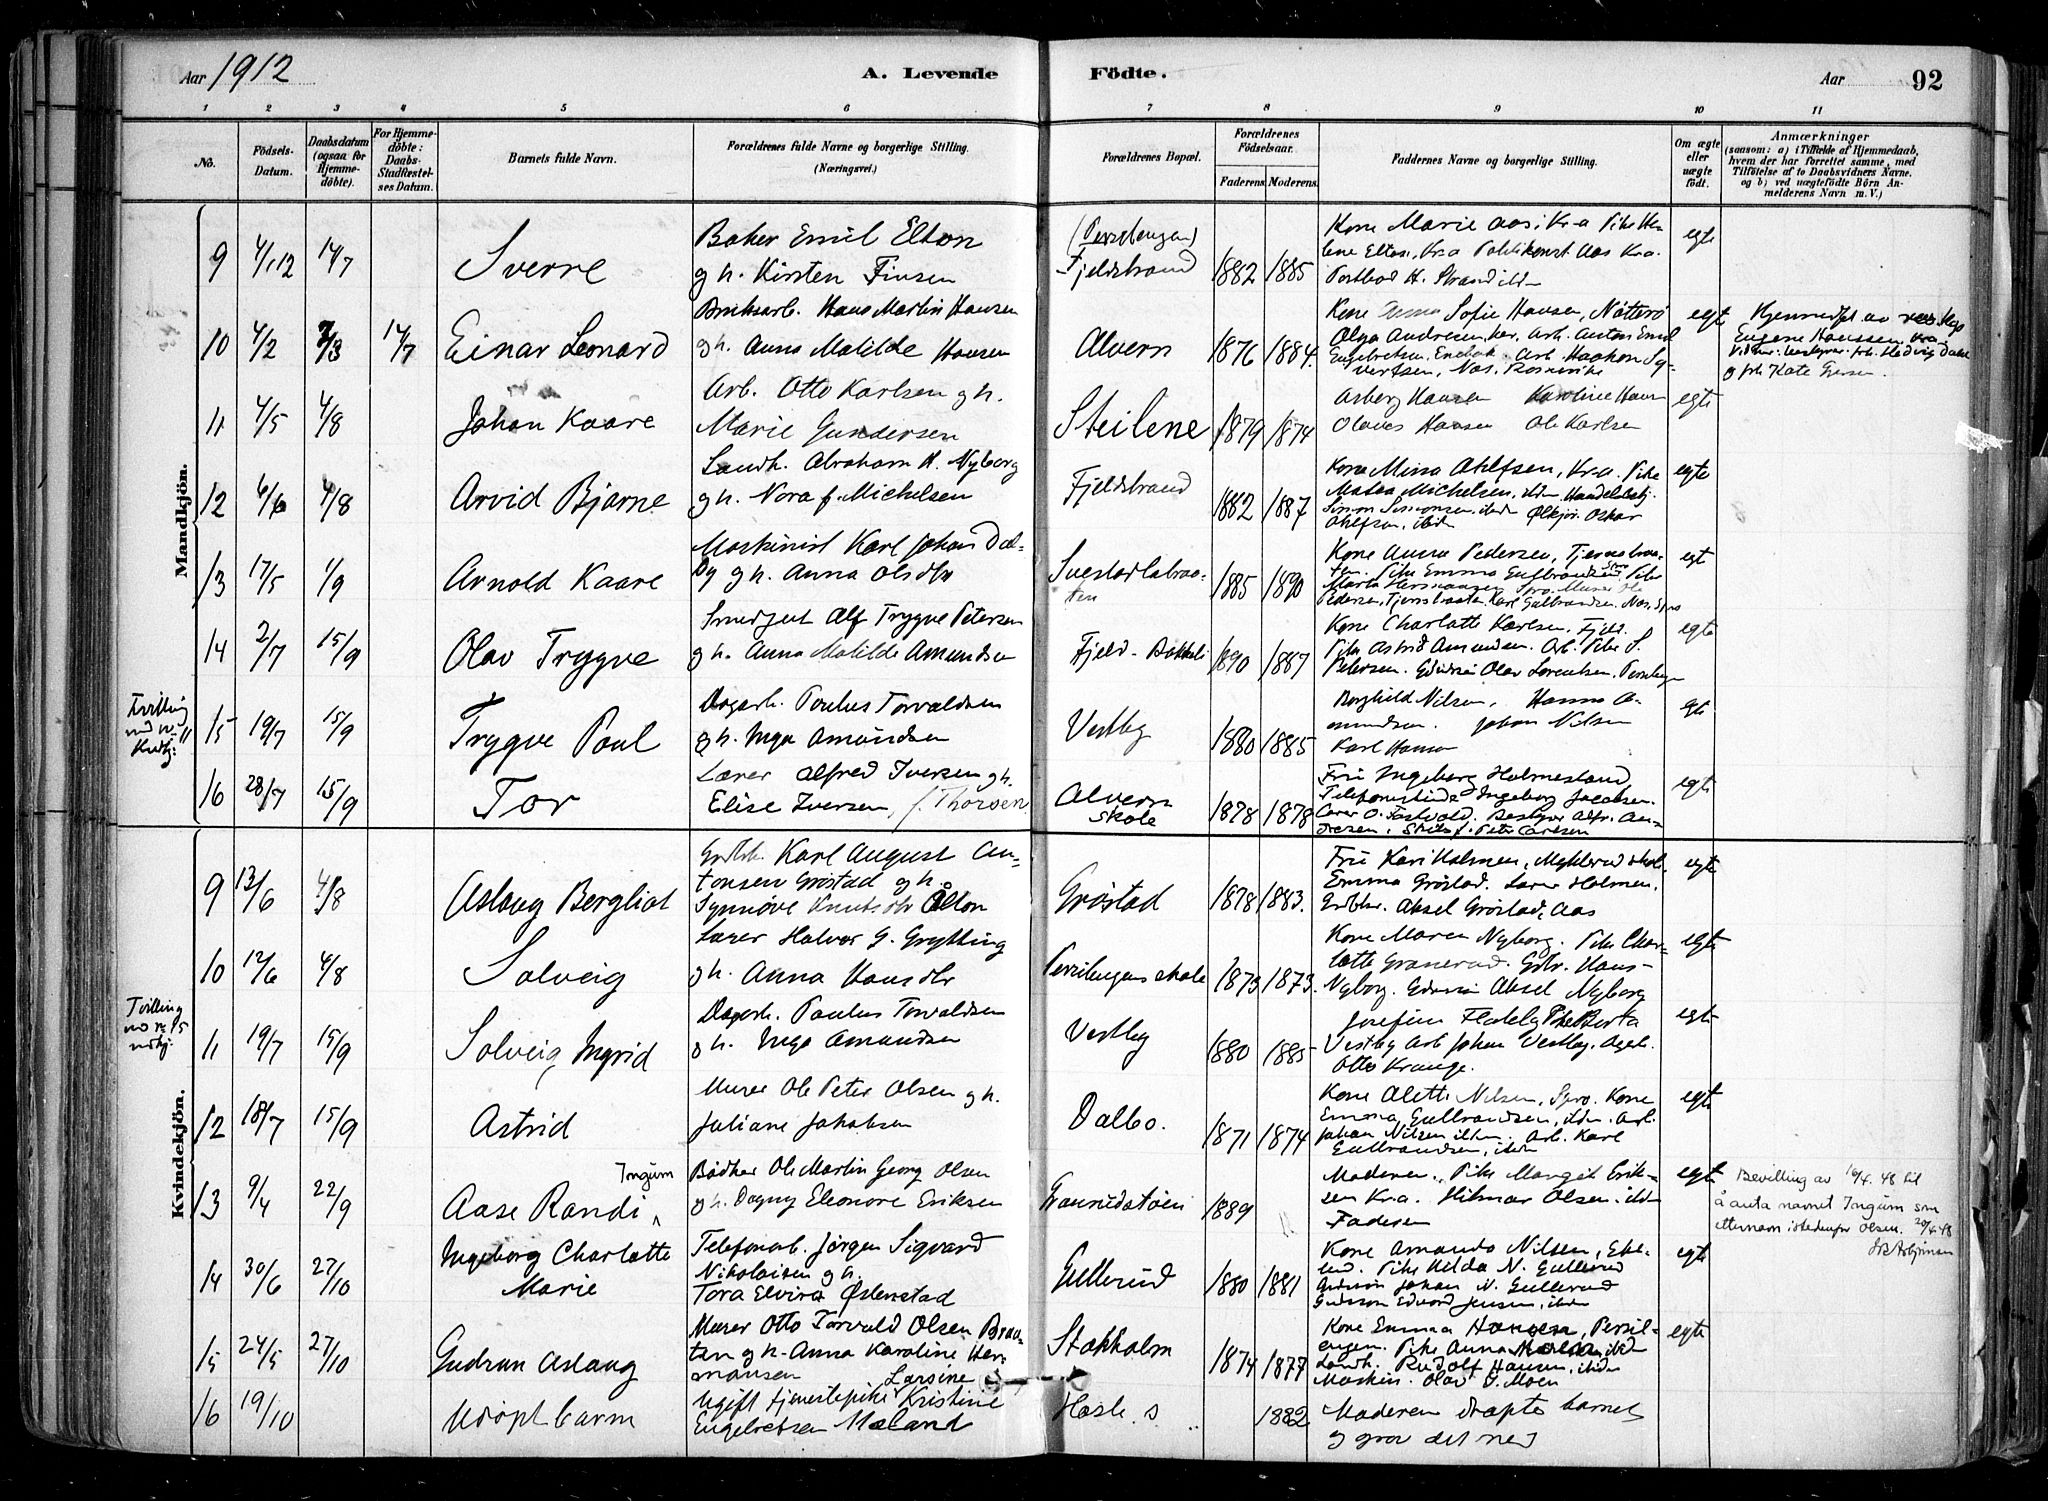 Aar 1912
A. Levende
Födte.
Aar
92
1 2 3 4 5 6 7 8 9 10 11
No.
Födsels-
Datum.
Daabsdatum
(ogsaa for
Hjemme-
döbte).
For Hjemme-
döbte:
Daabs-
Stadfæstel-
ses Datum.
Barnets fulde Navn.
Forældrenes fulde Navne og borgerlige Stilling.
(Næringsvei.)
Forældrenes Bopæl.
Forældrenes
Födselsaar.
Faderens. Moderens.
Faddernes Navne og borgerlige Stilling.
Om ægte
eller
uægte
födt.
Anmærkninger
(saasom: a) i Tilfælde af Hjemmedaab,
hvem der har forrettet samme, med
Tilföielse af to Daabsvidners Navne.
og b) ved uægtefödte Börn An-
melderens Navn m. V.)
Mandkjön.
9 4/1 12 14/7 Sverre
Baker Emil Elton
g h. Kirsten Finsen
(Persilengen)
Fjeldstrand
1882 1885
Kone Marie Aas, Kra Pike He-
lene Elton, Kra Politikonst Aas Kra.
Postbud H. Strand
egte
10 4/2 3/3 14/7 Einar Leonard
Bruksarb. Hans Martin Hansen
gh. Anna Matilde Hansen
Alvern
1876 1884.
Kone Anna Sofie Hansen, Nötterö
Olga Andresen her, Arb. Anton Emil
Engebretsen, Arb. Haakon Sy-
vertsen, Nes.
egte
Hjemmedøpt av
Eugene Hanssen, Kra
og frk Kate
11 4/5 4/8 Johan Kaare
Arb. Otto Karlsen g h.
Marie Gundersen
Steilene
1879 1874
Asberg Hansen Karoline Hansen
Olaves Hansen Ole Karlsen
egte
12 6/6 4/8 Arvid Bjarne
Landh. Abraham H. Nyborg
g h. Nora f. Michelsen
Fjeldstrand
1882 1887
Kone Minna Ahlfsen, Kra. Pike
Matea Michelsen, ibidm Handelsbetj.
Simon Simonsen, ibid Ølkjør. Oskar
Ahlfsen, ibidm
egte
13 17/5 1/9 Arnold Kaare
Maskinist Karl Johan Dæl-
by g h. Anna Olsdtr
Svestadbraa-
ten
1885 1890
Kone Anna Pedersen, Tjernsbraa-
ten. Pike Emma Gulbrandsen Spro Pike
Marta Hermansen Spro. Murer Ole
Pedersen, Tjernsbraaten, Karl Gulbrandsen, Nes. Spro
egt
14 2/7 15/9 Olav Trygve
Smedjent Alf Trygve Petersen
g h. Anna Matilde Amundsen
Fjeld-Bakkeli
1890 1887
Kone Charlotte Karlsen, Fjeld.
Pike Astrid Amundsen. Arb. Peter S.
Petersen. Gdssøn Olav Lorentsen, Persilengen
egte
Tvilling
med no 11
Kvdkj:
15 19/7 15/9 Trygve Paul
Dagarb. Paulus Torvaldsen
gh. Inga Amundsen
Vestby
1880 1885
Borghild Nilsen, Hanna A-
mundsen. Johan Nilsen
Karl Hansen
egte
16 28/7 15/9 Tor
Lærer Alfred Iversen gh.
Elise Iversen, f. Thorsen
Alvern
Skole
1878 1878
Frü Ingeborg Holmesland
Telefonistinde Ingeborg Jacobsen.
Lærer O. Tostvold. Bestyrer Alfr. An-
dresen, Peter Carlsen
egte
Kvindekjön.
9 13/6 4/8 Aslaug Bergliot
Grdbr. Karl August An-
tonsen Gröstad g h.
Synnöve Knutsdtr Ålton
Gröstad
1878 1883.
Frü Kari Holmen, Myklerud skole
Emma Gröstad. Lærer Holmen.
Grdbr. Aksel Gröstad, Aas
egte
10 12/6 4/8 Solveig
Lærer Halvor G. Grytting
gh. Anna Hansdtr
Persilengens skole
1873 1873.
Kone Maren Nyborg. Pike Char-
lotte Granerud. Gdbr. Hans
Nyborg. Gdssøn Aksel Nyborg
egte
Tvilling
m no 15
mdkj.
11 19/7 15/9 Solveig Ingrid
Dagarb. Paulus Torvaldsen
g h. Inga Amundsen
Vestby
1880 1885
Josefine Fladeby Pike Berta
Vestby Arb Johan Vestby. Agent.
Otto Krange.
egte
12 18/7 15/9 Astrid
Murer Ole Peter Olsen g h.
Juliane Jakobsen
Dalbo.
1871 1874
Kone Alette Nilsen, Spro. Kone
Emma Gulbrandsen, ibidm. Arb.
Johan Nilsen ibidm. Arb. Karl
Gulbrandsen, ibidm
egte
13 9/4 22/9 Aase Randi Ingum
Bödker Ole Martin Georg Olsen
gh. Dagny Eleonore Eriksen
1889 "
Moderen. Pike Margit Erik-
sen Kra. Hilmar Olsen. ibidm
Faderen
egte
Bevilling av 16/4. 48 til
å anta navnet Ingum som
etternavn istedenfor Olsen. 20/4.48
14 30/6 27/10 Ingeborg Charlotte
Marie
Telefonarb. Jørgen Sigvard
Nikolaisen g h.
Tora Elvira Østenstad
Gullerud
1880 1881
Kone Amanda Nilsen, Eke-
lund. Pike Hilda N. Gullerud
Gardssøn Johan N. Gullerud
Gardssøn Edvard Jensen, ibidm
egte
15 24/5 27/10 Gudrun Aslaug
Murer Otto Torvald Olsen Braa-
ten g h. Anna Karoline Her-
mansen
Stokholm
1874 1877
Kone Emma Hansen, Persil-
engen. Pike Anna ibidm
Landh. Rudolf Hansen, ibidm
Maskin. Olav O. Moen
egte
16 19/10 Udöpt barn
Ugift tjenestepike Larsine Kristine
Engebretsen Mæland
Hasle s.
1882
Moderen dræpte barnet
og grov det ned